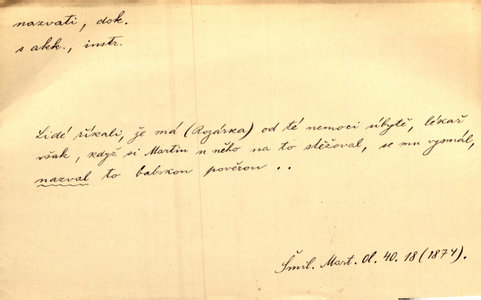 nazvati, dok.
s akk., instr.
Lidé říkali, že má (Rozárka) od té nemoci úbytě, lékař
však, když si Martin u něho na to stěžoval, se mu vysmál,
nazval to babskou pověrou ..
Šmil. Mart. Ol. 40. 18 (1874).